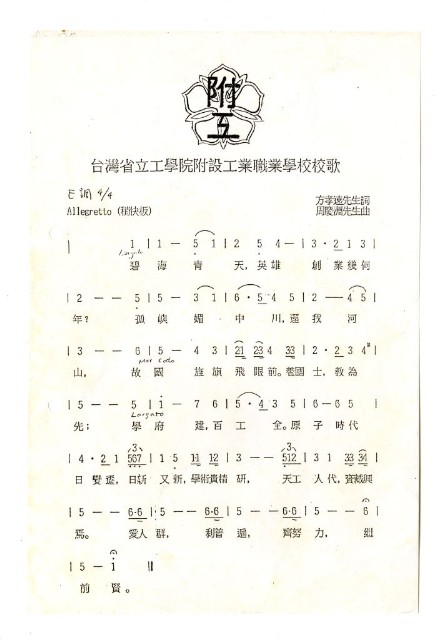 附
工
台灣省立工學院附設工業職業學校校歌
E調 4/4
方孝遠先生詞
Allegretto (稍快板)
周慶淵先生曲
1 | 1 — 5 1 | 2 5 4 — | 3 · 2 1 3 |
碧 海 青 天, 英 雄 創 業 幾 何
| 2 — — 5 | 5 — 3 1 | 6 · 5 4 5 | 2 — 4 5 |
年? 孤 嶼 媚 中 川, 還 我 河
| 3 — — 6 | 5 — 4 3 | 21 23 4 33 | 2 · 2 3 4# |
山, 故 國 旌 旗 飛 眼 前。 國 士, 教 為
| 5 — — 5 | 1 — 7 6 | 5 · 4 3 5 | 6 — 6 5 |
Largato
先; 學 府 建, 百 工 全。 原 子 時 代
| 4 · 2 1 567 | 1 5 11 12 | 3 — — 512 | 3 1 33 34 |
日 變 遷, 日新 又 新, 學術貴精 研, 天工 人 代, 興
| 5 — — 6·6 | 5 — — 6·6 | 5 — — 6·6 | 5 — — 6 |
焉。 愛人 群, 利普 遍, 齊努 力, 繼
| 5 — 1 ||
前 賢。